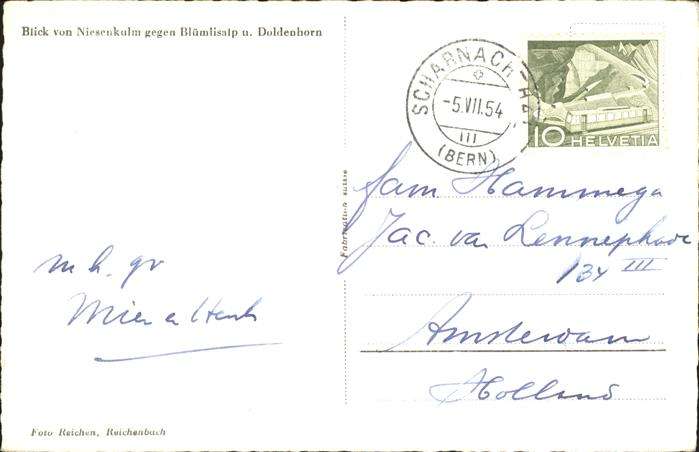 Blick von Niesenkulm gegen Blümlisalp u. Doldenhorn
SCHARNACH-
-5.VII.54
III
(BERN)
10 HELVETIA
Fabrication suisse
fam Hammega
Jac. van Lennepkade
134 III
Amsterdam
Holland
m. h. gr
Mien en Henk
Foto Reichen, Reichenbach